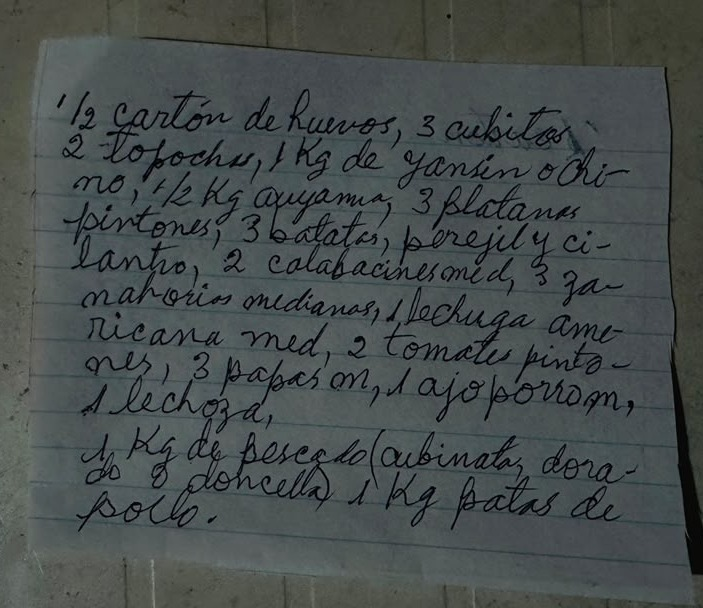 1/2 cartón de huevos, 3 cubitos
2 topochos, 1 Kg de yansin o chi-
no, 1/2 Kg auyama, 3 platanos
pintones, 3 batatas, perejil y ci-
lantro, 2 calabacines med, 3 za-
nahorias medianas, 1 lechuga ame-
ricana med, 2 tomates pinto-
nes, 3 papas m, 1 ajo porro m,
1 lechoza,
1 Kg de pescado (curbinata, dora-
do o doncella) 1 Kg patas de
pollo.